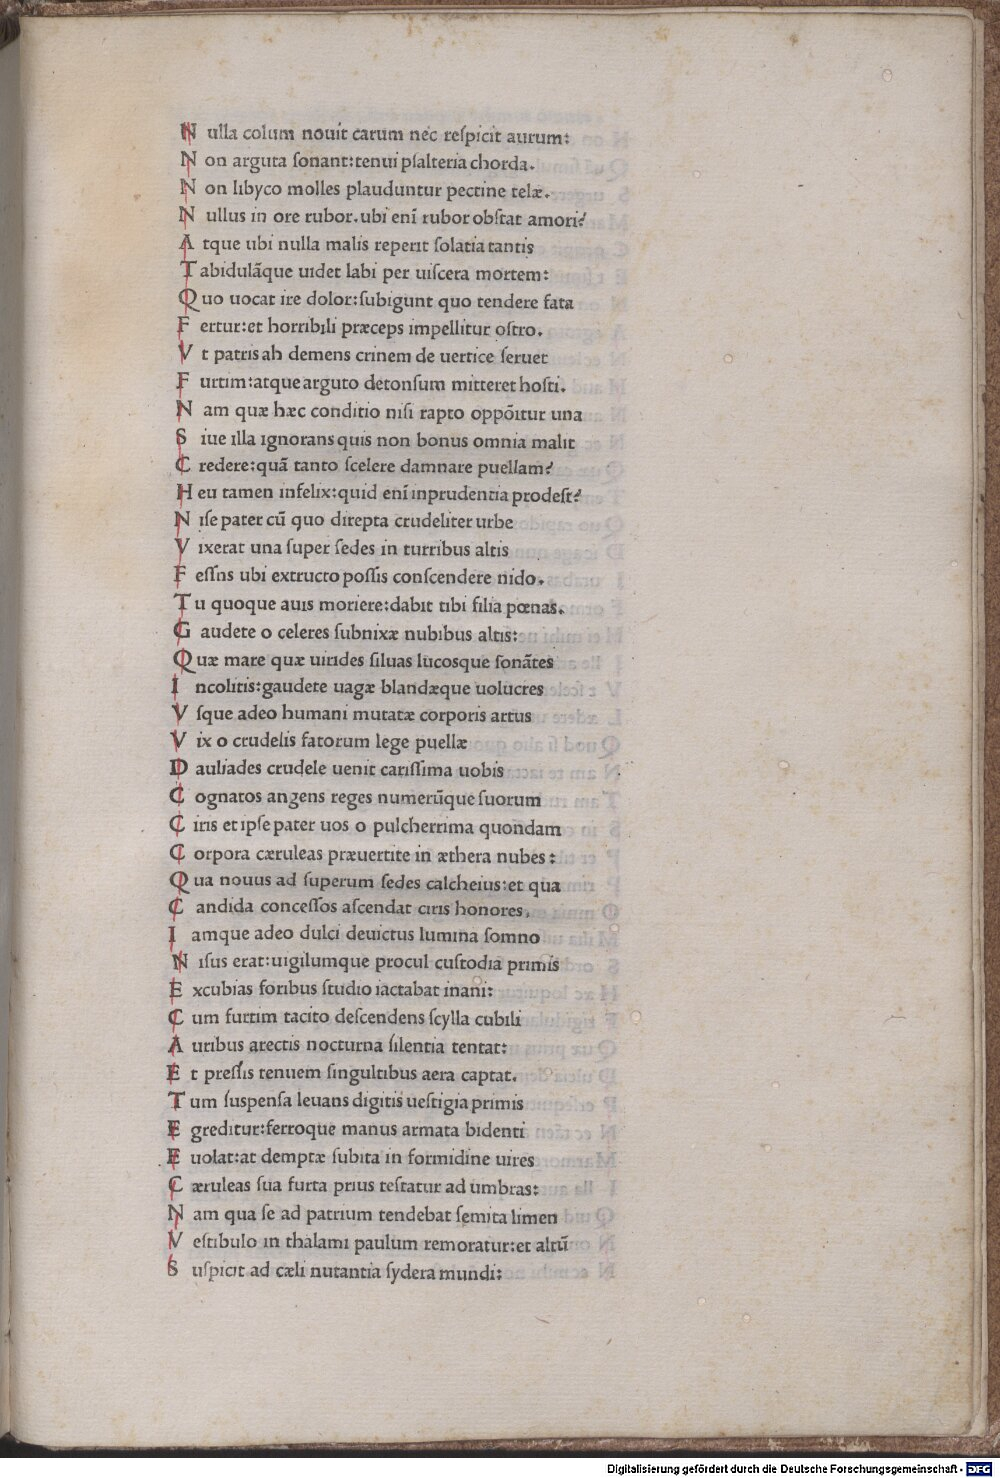 N ulla colum nouit carum nec reſpicit aurum:
N on arguta ſonant:tenui pſalteria chorda.
N on libyco molles plauduntur pectine telæ.
N ullus in ore rubor.ubi enī rubor obſtat amori?
A tque ubi nulla malis reperit ſolatia tantis
T abidulāque uidet labi per uiſcera mortem:
Q uo uocat ire dolor:ſubigunt quo tendere fata
F ertur:et horribili præceps impellitur oſtro.
V t patris ah demens crinem de uertice ſeruet
F urtim:atque arguto detonſum mitteret hoſti.
N am quæ hæc conditio niſi rapto oppōitur una
S iue illa ignorans quis non bonus omnia malit
C redere:quā tanto ſcelere damnare puellam?
H eu tamen infelix:quid enī inprudentia prodeſt?
N iſe pater cū quo direpta crudeliter urbe
V ixerat una ſuper ſedes in turribus altis
F eſſns ubi extructo poſſis conſcendere nido.
T u quoque auis moriere:dabit tibi filia pœnas.
G audete o celeres ſubnixæ nubibus altis:
Q uæ mare quæ uirides ſiluas lucosque ſonātes
I ncolitis:gaudete uagæ blandæque uolucres
V ſque adeo humani mutatæ corporis artus
V ix o crudelis fatorum lege puellæ
D auliades crudele uenit cariſſima uobis
C ognatos angens reges numerūque ſuorum
C iris et ipſe pater uos o pulcherrima quondam
C orpora cæruleas præuertite in æthera nubes:
Q ua nouus ad ſuperum ſedes calcheius:et qua
C andida conceſſos aſcendat ciris honores.
I amque adeo dulci deuictus lumina ſomno
N iſus erat:uigilumque procul cuſtodia primis
E xcubias foribus ſtudio iactabat inani:
C um furtim tacito deſcendens ſcylla cubili
A uribus arectis nocturna ſilentia tentat:
E t preſſis tenuem ſingultibus aera captat.
T um ſuspenſa leuans digitis ueſtigia primis
E greditur:ferroque manus armata bidenti
E uolat:at demptæ ſubita in formidine uires
C æruleas ſua furta prius teſtatur ad umbras:
N am qua ſe ad patrium tendebat ſemita limen
V eſtibulo in thalami paulum remoratur:et altū
S uſpicit ad cæli nutantia ſydera mundi:
Digitalisierung gefördert durch die Deutsche Forschungsgemeinschaft - DFG